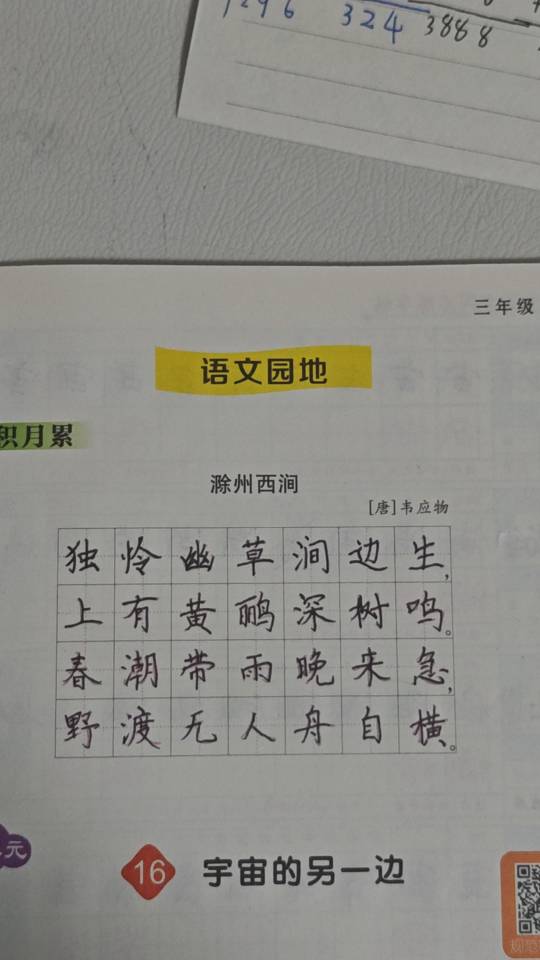 324 3888
三年级
语文园地
积月累
滁州西涧
[唐]韦应物
独怜幽草涧边生,
上有黄鹂深树鸣。
春潮带雨晚来急,
野渡无人舟自横。
元
16 宇宙的另一边